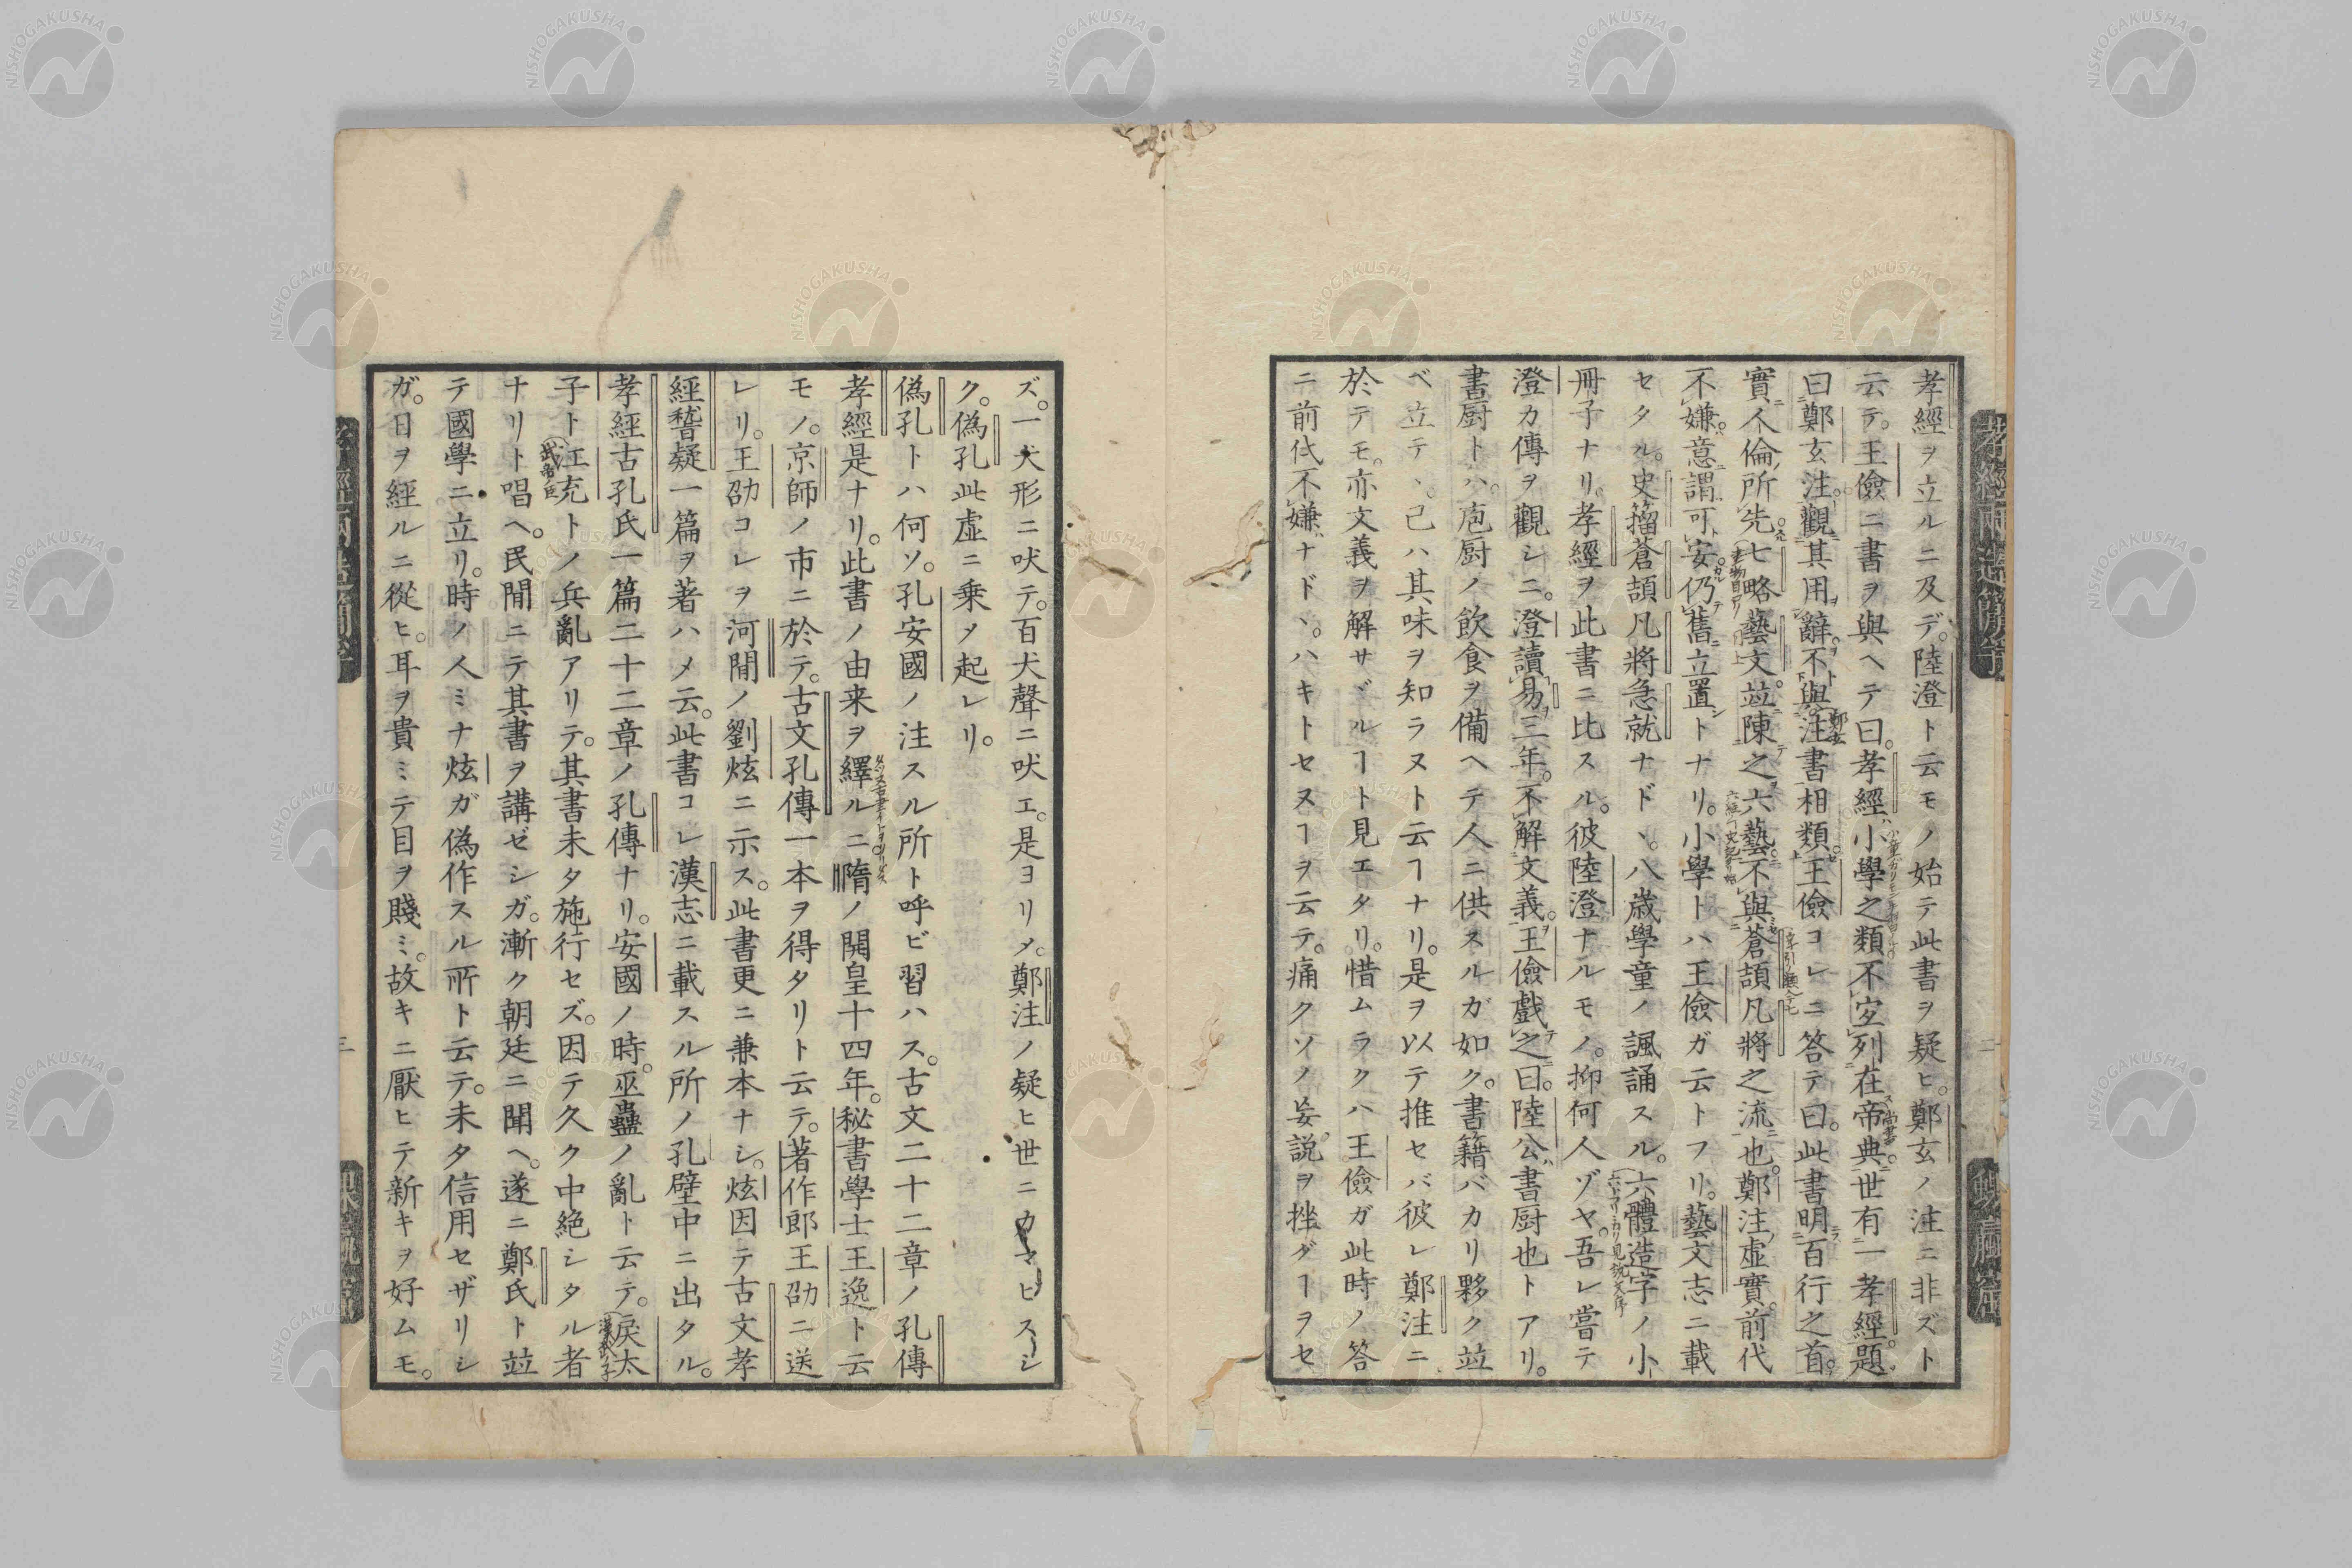 孝經ヲ立ルニ及デ。陸澄ト云モノ始テ此書ヲ疑ヒ。鄭玄ノ注ニ非ズト
云テ。王儉ニ書ヲ與ヘテ曰。孝經小學之類不宜列在帝典。世有一孝經。題
曰鄭玄注。觀其用辭不與注書相類。王儉コレニ答テ曰。此書明百行之首。
實人倫所先。七略藝文竝陳之六藝。不與蒼頡凡將之流也。鄭注虛實。前代
不嫌。意謂可安。仍舊立置トナリ。小學トハ王儉ガ云トフリ。藝文志ニ載
セタル。史籀蒼頡凡將急就ナド、。八歳學童ノ諷誦スル。六體造字ノ小
冊子ナリ。孝經ヲ此書ニ比スル。彼陸澄ナルモノ。抑何人ゾヤ。吾レ嘗テ
澄カ傳ヲ觀シニ。澄讀易三年。不解文義。王儉戲之曰。陸公書厨也トアリ。
書厨トハ。庖厨ノ飲食ヲ備ヘテ人ニ供スルガ如ク。書籍バカリ夥ク竝
ベ立テ、。己ハ其味ヲ知ラヌト云ヿナリ。是ヲ以テ推セバ彼レ鄭注ニ
於テモ。亦文義ヲ解サヾルヿト見エタリ。惜ムラクハ王儉ガ此時ノ答
ニ前代不嫌ナド、。ハキトセヌヿヲ云テ。痛クソノ妄説ヲ挫グヿヲセ
ズ。一犬形ニ吠テ。百犬聲ニ吠エ。是ヨリメ。鄭注ノ疑ヒ世ニカマヒスシ
ク。僞孔此虛ニ乗メ起レリ。
僞孔トハ何ソ。孔安國ノ注スル所ト呼ビ習ハス。古文二十二章ノ孔傳
孝經是ナリ。此書ノ由来ヲ繹ルニ隋ノ開皇十四年。秘書學士王逸ト云
モノ。京師ノ市ニ於テ。古文孔傳一本ヲ得タリト云テ。著作郎王劭ニ送
レリ。王劭コレヲ河間ノ劉炫ニ示ス。此書更ニ兼本ナシ。炫因テ古文孝
經稽疑一篇ヲ著ハメ云。此書コレ漢志ニ載スル所ノ孔壁中ニ出タル。
孝經古孔氏一篇二十二章ノ孔傳ナリ。安國ノ時。巫蠱ノ亂ト云テ。戾太
子ト江充トノ兵亂アリテ。其書未タ施行セズ。因テ久ク中絶シタル者
ナリト唱ヘ。民間ニテ其書ヲ講ゼシガ。漸ク朝廷ニ聞ヘ。遂ニ鄭氏ト竝
テ國學ニ立リ。時ノ人ミナ炫ガ僞作スル所ト云テ。未タ信用セザリシ
ガ。日ヲ經ルニ從ヒ。耳ヲ貴ミテ目ヲ賤ミ。故キニ厭ヒテ新キヲ好ムモ。